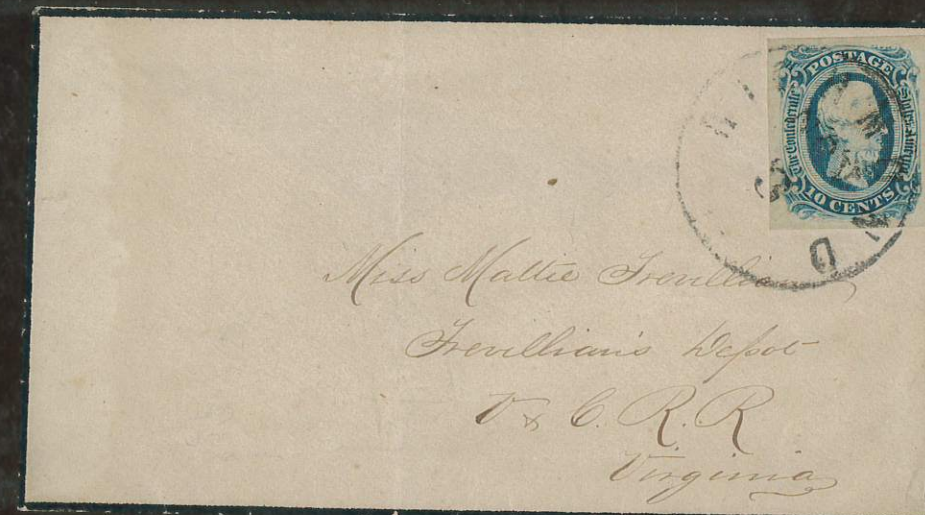 POSTAGE
The Confederate States of America
10 CENTS
RICHMOND
Miss Mattie Trevillian
Trevillian's Depot
V & C. R. R
Virginia